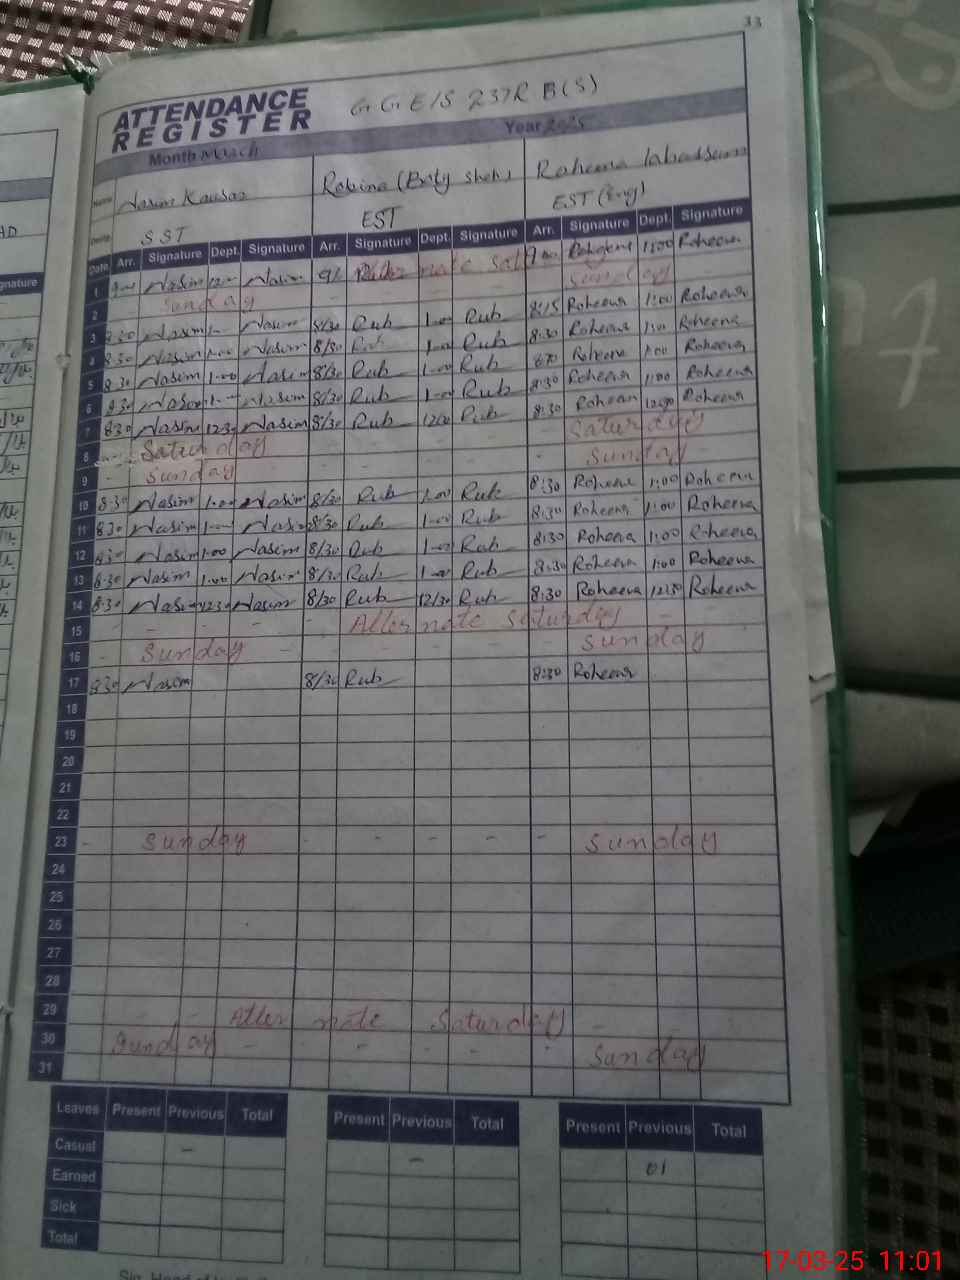 33
ATTENDANCE
REGISTER
G G E/S 237 R B(S)
Month March Year 2025
Name Nasim Kausar Robina (Bxty sheh) Raheena Tabassum
SST EST EST (Eng)
Date Arr. Signature Dept. Signature Arr. Signature Dept. Signature Arr. Signature Dept. Signature
1 Nasim Nasim 9/ Alter nate sat Raheena 1:00 Roheena
2 Sunday - - - - Sunday -
3 8:30 Nasim 1- Nasim 8/30 Rub 1-00 Rub 8:15 Roheena 1:00 Roheena
4 8:30 Nasim 1:00 Nasim 8/30 Rub 1-00 Rub 8:30 Roheena 1:00 Roheena
5 8:30 Nasim 1-00 Nasim 8/30 Rub 1-00 Rub Roheena 1:00 Roheena
6 8:30 Nasim 1- Nasim 8/30 Rub 1-00 Rub 8:30 Roheena 1:00 Roheena
7 8:30 Nasim 12:30 Nasim 8/30 Rub Rub 8:30 Roheena Roheena
8 Saturday - - - - Saturday
9 - Sunday - - - - Sunday -
10 8:30 Nasim 1:00 Nasim 8/30 Rub 1:00 Rub 8:30 Roheena 1:00 Roheena
11 8:30 Nasim 1- Nasim 8/30 Rub 1-00 Rub 8:30 Roheena 1:00 Roheena
12 8:30 Nasim 1:00 Nasim 8/30 Rub 1-00 Rub 8:30 Roheena 1:00 Roheena
13 8:30 Nasim 1:00 Nasim 8/30 Rub 1-00 Rub 8:30 Roheena 1:00 Roheena
14 8:30 Nasim 1230 Nasim 8/30 Rub 12/30 Rub 8:30 Roheena 12:30 Roheena
15 - - - - Alter nate saturday -
16 - Sunday - - - - - Sunday
17 8:30 Nasim 8/30 Rub 8:30 Roheena
18
19
20
21
22
23 - Sunday - - - - - Sunday
24
25
26
27
28
29 - - Alter nate Saturday -
30 Sunday - - - - - Sunday
31
Leaves Present Previous Total Present Previous Total Present Previous Total
Casual - - 01
Earned
Sick
Total
17-03-25 11:01